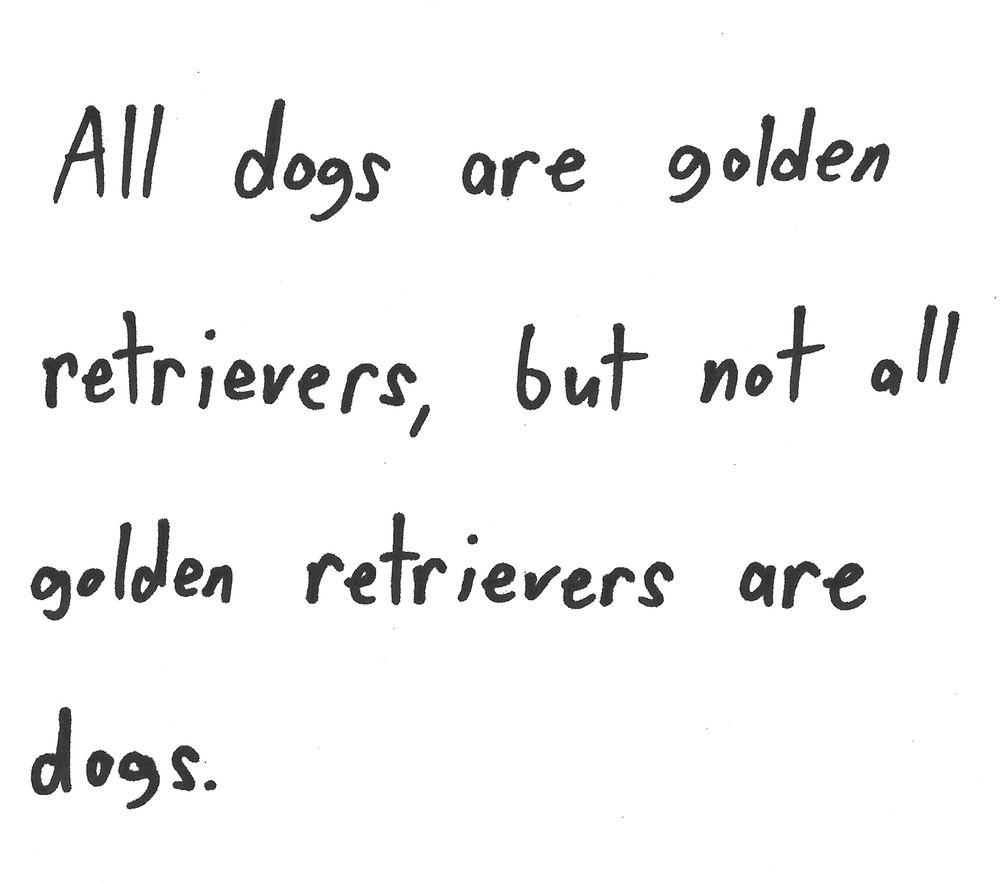 All dogs are golden
retrievers, but not all
golden retrievers are
dogs.